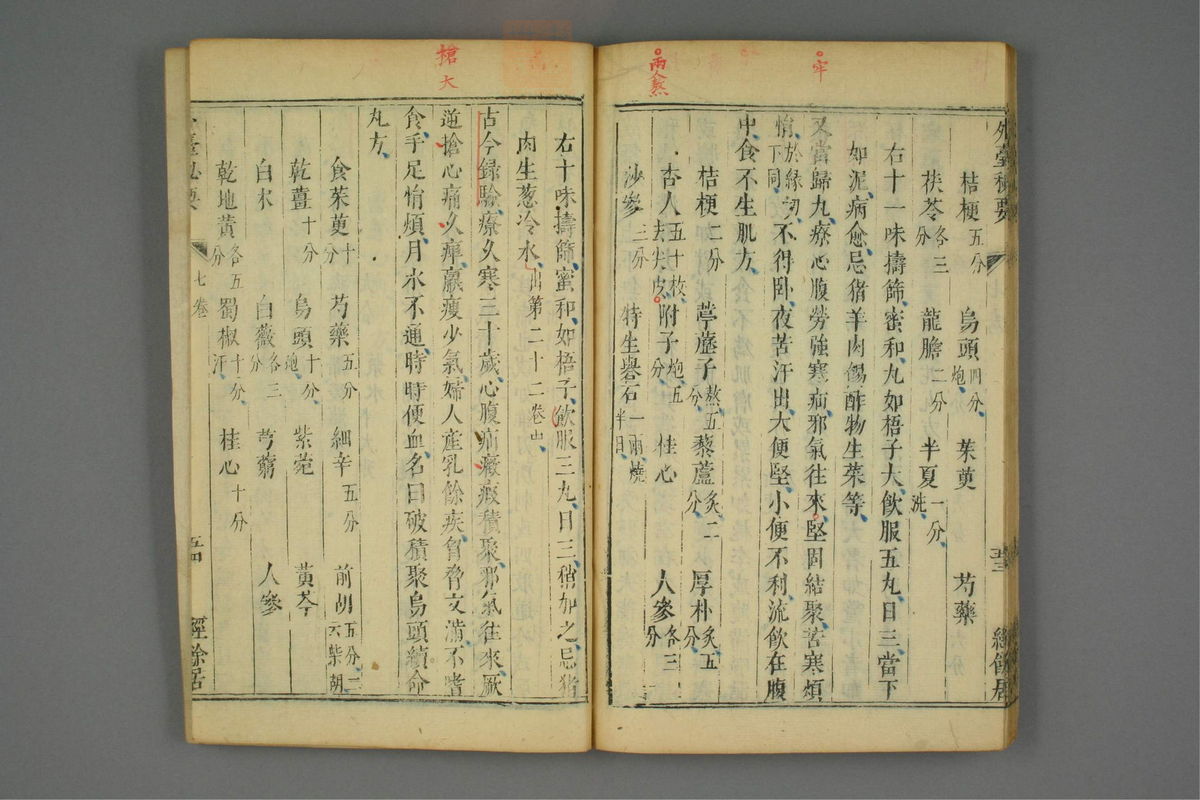 牢
兩熬
外臺秘要
桔梗五分 烏頭四分炮 茱萸 芍藥
茯苓各三分 龍膽二分 半夏一分洗
右十一味擣篩蜜和丸如梧子大飲服五丸日三當下
如泥病愈忌猪羊肉餳酢物生菜等
又當歸丸療心腹勞強寒疝邪氣往來堅固結聚苦寒煩
惋於緣切下同不得卧夜苦汗出大便堅小便不利流飲在腹
中食不生肌方
桔梗二分 葶藶子熬五分 藜蘆炙二分 厚朴炙五分
杏人五十枚去尖皮 附子炮五分 桂心 人參各三分
沙參三分 特生礜石一兩燒半日
經餘居
搶大
右十味擣篩蜜和如梧子飲服三丸日三稍加之忌猪
肉生葱冷水出第二十二卷山
古今録驗療久寒三十歲心腹疝癥瘕積聚邪氣往來厥
逆搶心痛久痺羸瘦少氣婦人產乳餘疾胷脅支滿不嗜
食手足悁煩月水不通時時便血名曰破積聚烏頭續命
丸方
食茱萸十分 芍藥五分 細辛五分 前胡五分一云柴胡
乾薑十分 烏頭十分炮 紫菀 黃芩
白朮 白薇各三分 芎藭 人參
乾地黃各五分 蜀椒十分汗 桂心十分
外臺秘要 七卷 五四 經餘居